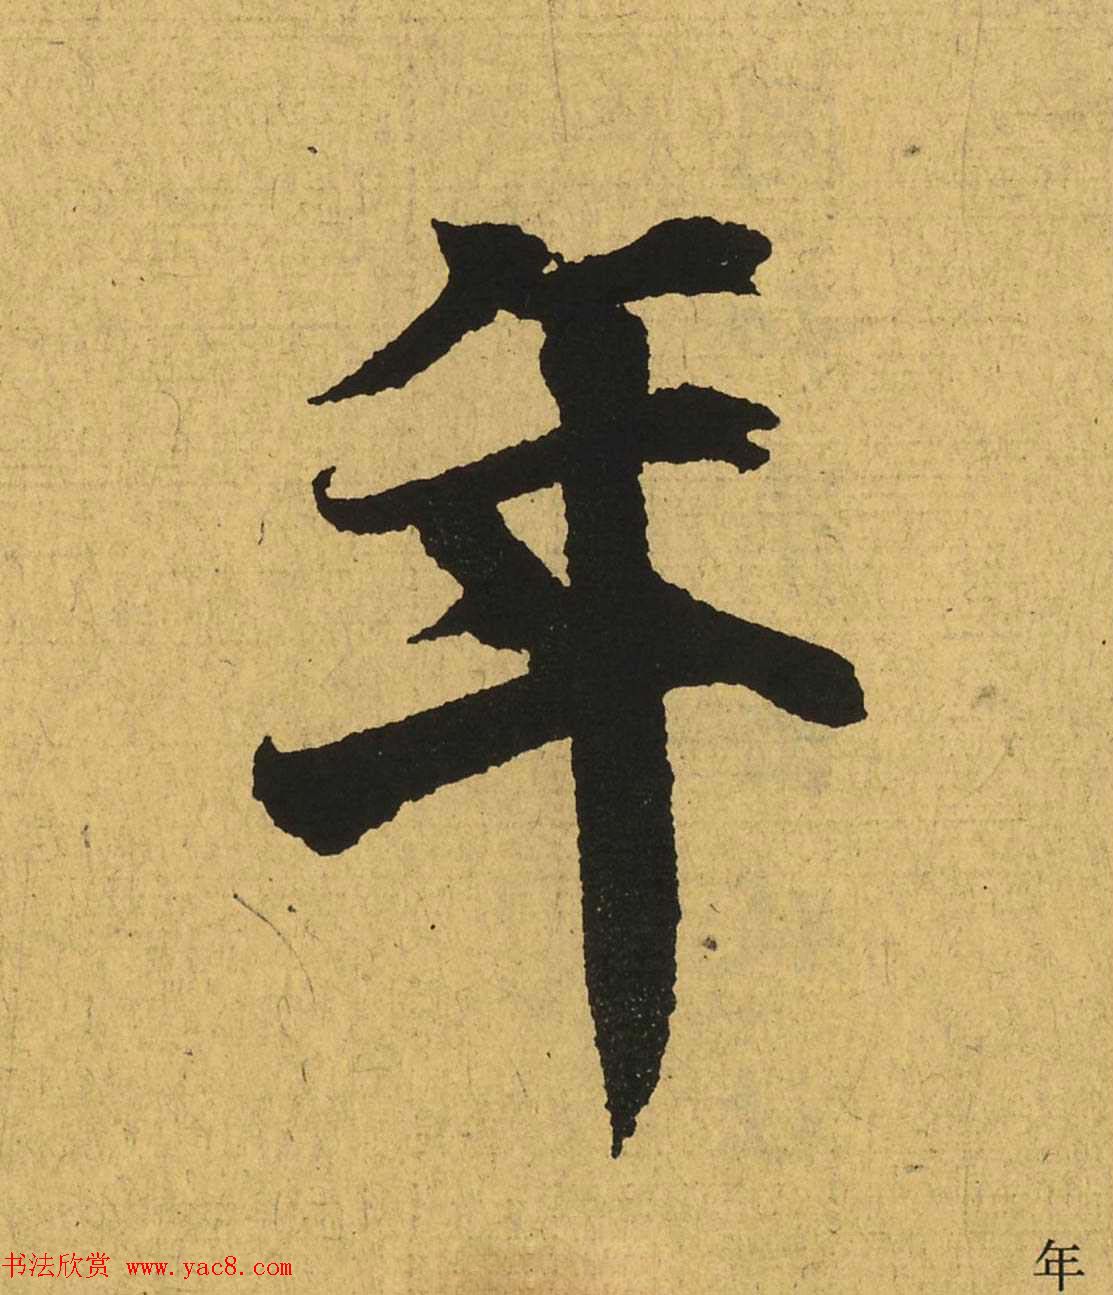 年
书法欣赏 www.yac8.com
年